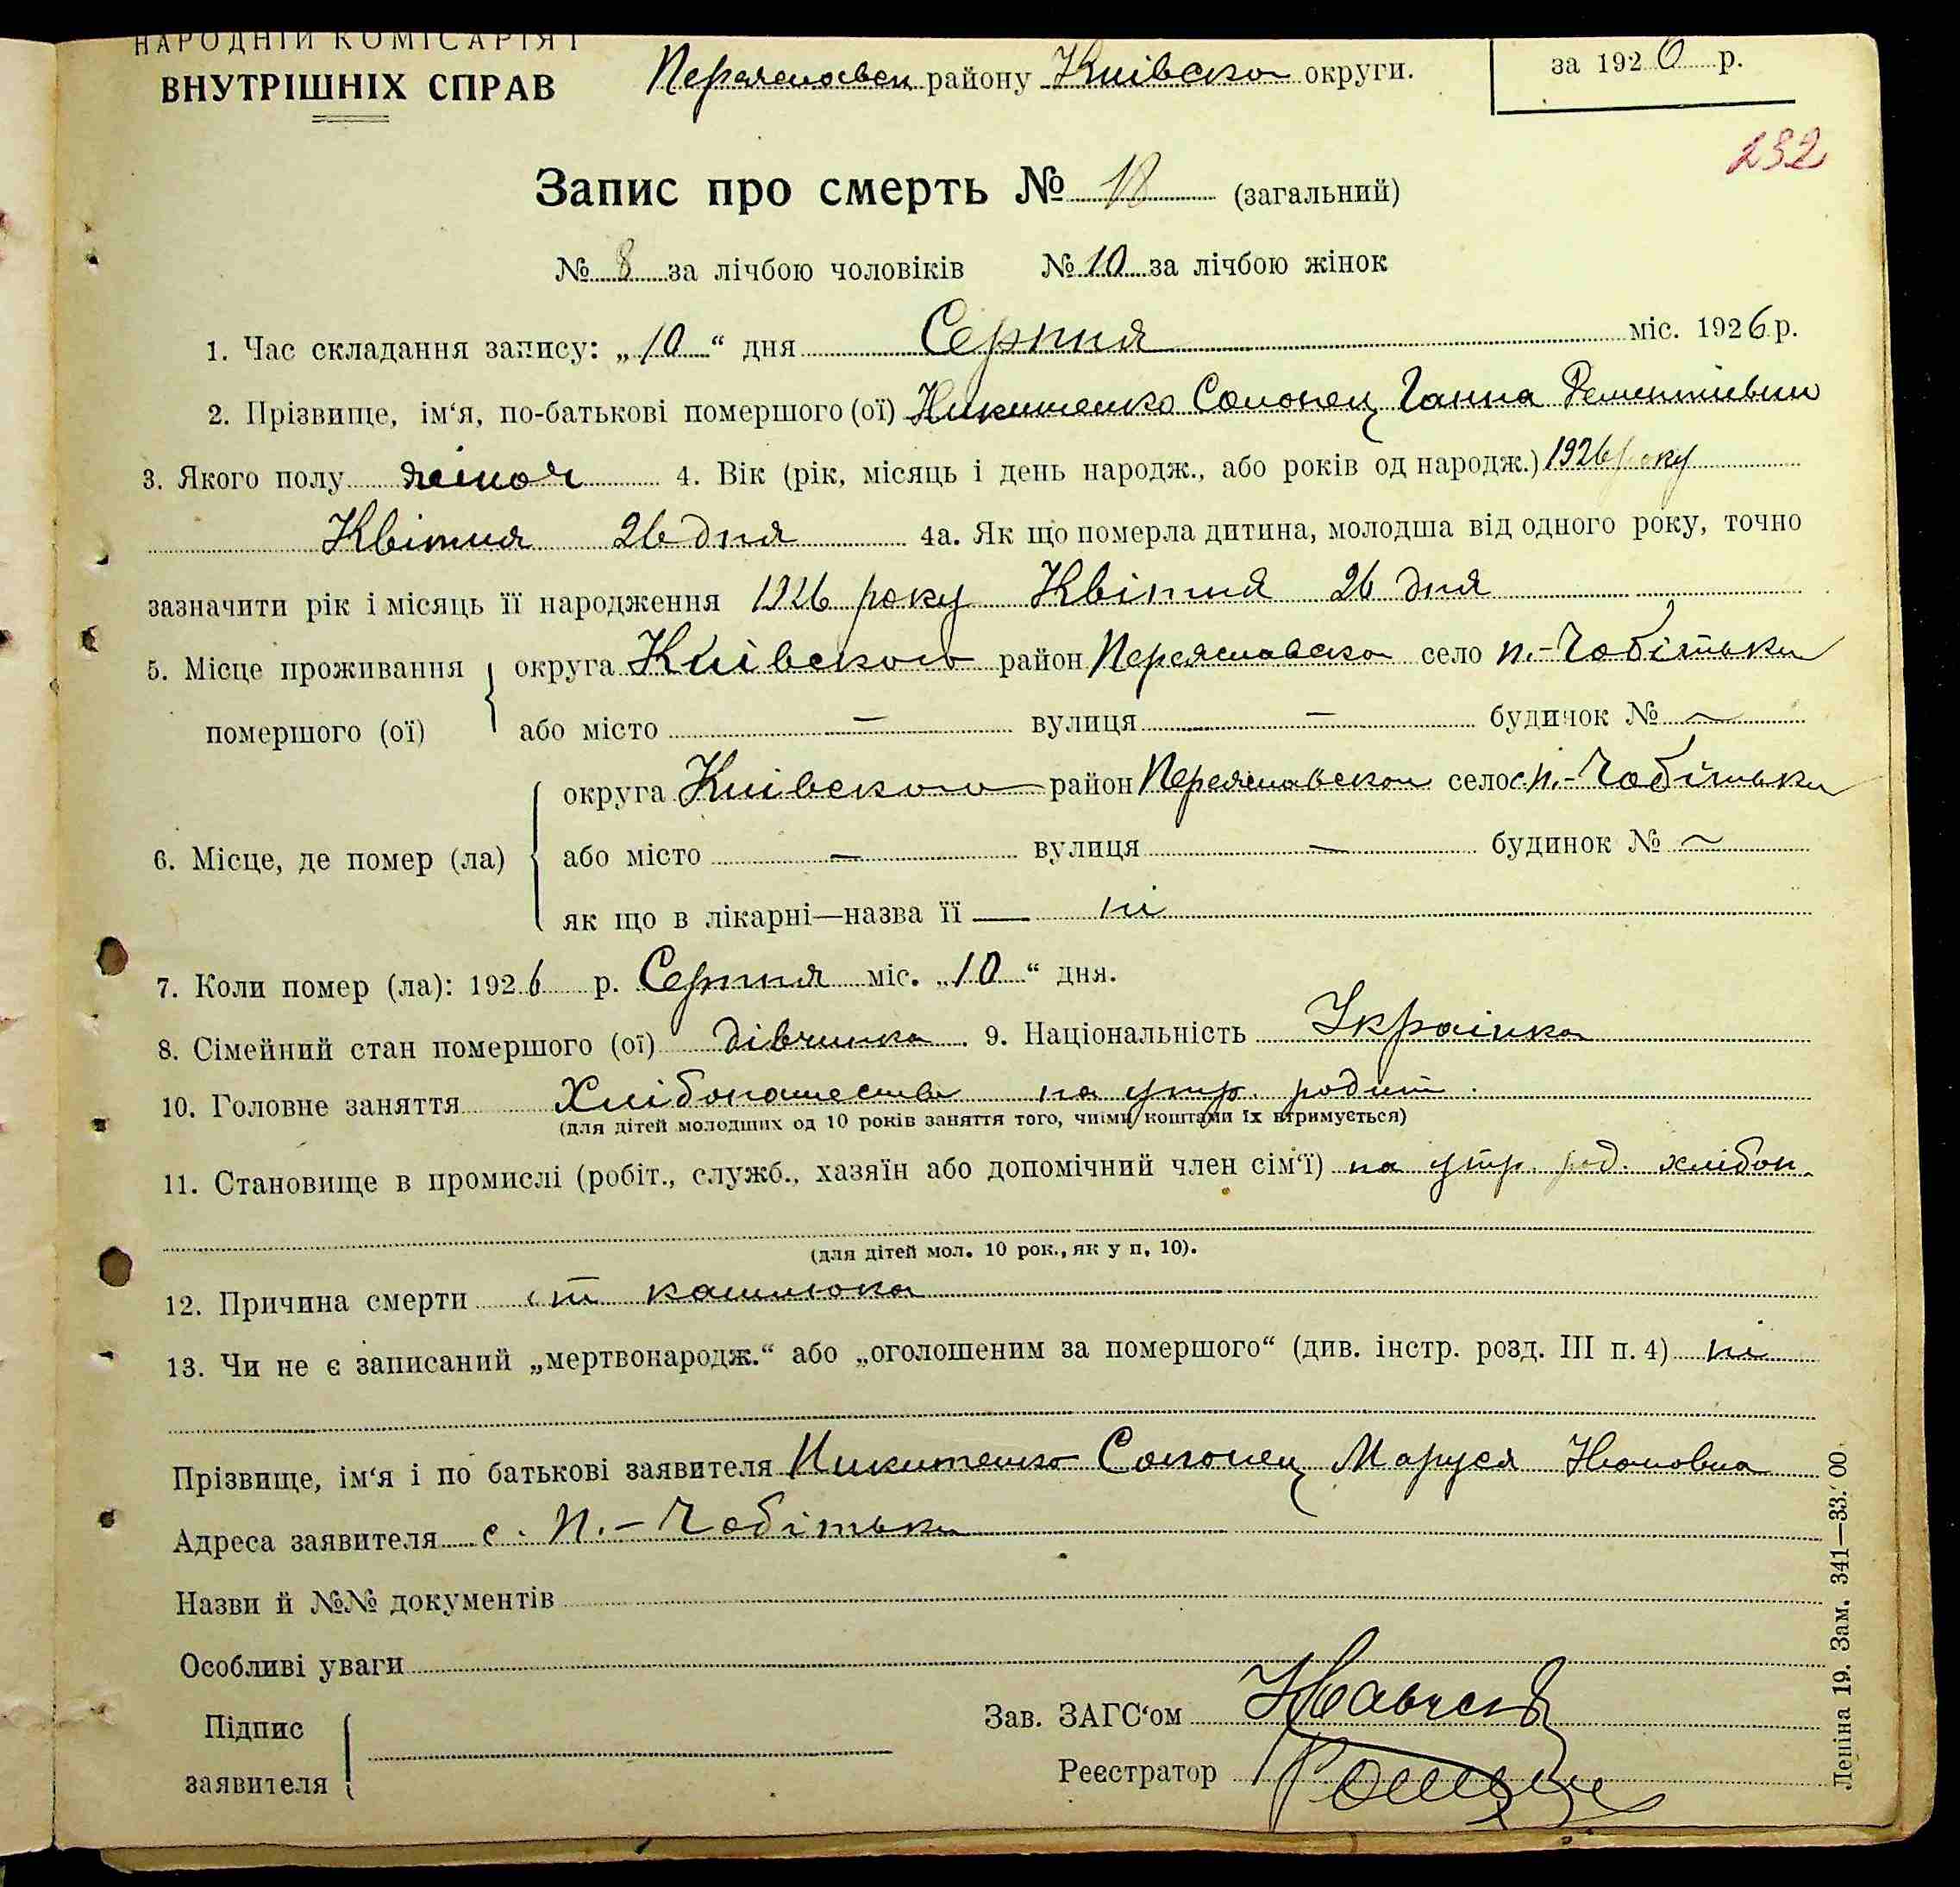 НАРОДНІЙ КОМІСАРІЯТ
ВНУТРІШНІХ СПРАВ
району Київсько округи.
за 1926 р.
232
Запис про смерть № 18 (загальний)
№ 8 за лічбою чоловіків № 10 за лічбою жінок
1. Час складання запису: „10“ дня Серпня міс. 1926 р.
2. Прізвище, ім‘я, по-батькові помершого (ої) Никитенко Сопонец Ганна
3. Якого полу жіноч 4. Вік (рік, місяць і день народж., або років од народж.) 1926 року
Квітня 26 дня 4а. Як що померла дитина, молодша від одного року, точно
зазначити рік і місяць її народження 1926 року Квітня 26 дня
5. Місце проживання помершого (ої) округа Київського район Переяславсько село п.-Чобітьки
або місто — вулиця — будинок № ~
6. Місце, де помер (ла) округа Київського район Переяславськом село с. п.-Чобітьки
або місто — вулиця — будинок № ~
як що в лікарні—назва її — ні
7. Коли помер (ла): 1926 р. Серпня міс. „10“ дня.
8. Сімейний стан помершого (ої) дівчинка. 9. Національність Українка
10. Головне заняття Хлібопашество на утр. родит.
(для дітей молодших од 10 років заняття того, чиїми коштами їх втримується)
11. Становище в промислі (робіт., служб., хазяїн або допомічний член сім‘ї) на утр. род. хлібоп.
(для дітей мол. 10 рок., як у п, 10).
12. Причина смерти от кашлюка
13. Чи не є записаний „мертвонародж.“ або „оголошеним за помершого“ (див. інстр. розд. III п. 4) ні
Прізвище, ім‘я і по батькові заявителя Никитенко Сопонец Маруся
Адреса заявителя с. П.-Чобітьки
Назви й №№ документів
Особливі уваги
Підпис заявителя
Зав. ЗАГС‘ом
Реєстратор
Леніна 19. Зам. 341—33.